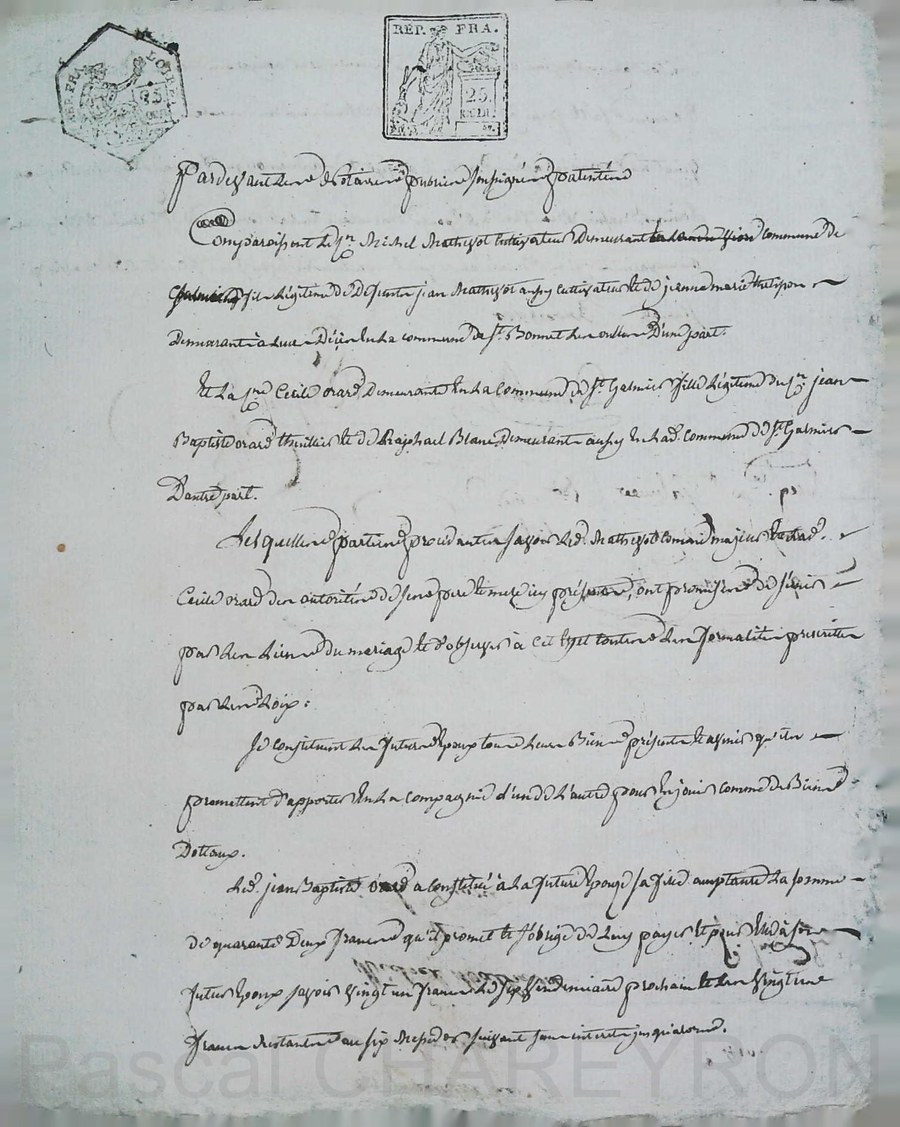 REP. FRA. LOIRE
25
REP. FRA.
25
Pardevant les Notaires publics soussignés patentés
Comparoissent le Sr. Michel Mathevot Cultivateur Demeurant commune de
fils Légitime de Défunts jean Mathevot aussy cultivateur et de jeanne marie
Demeurante à en la commune de St. Bonnet les oulles D'une part.
Et La Sre. Cecile orard Demeurante En La Commune de St. Galmier fille Légitime du Sr. jean
Baptiste orard et de Raphael Blanc Demeurant aussy En lad. commune de St. Galmier
D'autre part.
Lesquelles parties procédantes savoir led. Mathevot comme majeur et lad.
Cecile orard de autorités de ses père et mère icy présents, ont promis de s'unir
par les Liens du mariage et d'observer à cet effet toutes les formalités prescrites
par les Loix :
Se constituent les futurs Epoux tous leurs Biens présents et avenir qu'ils
promettent d'apporter En La compagnie d'un de L'autre pour En jouir comme de Biens
Dottaux.
Led. jean Baptiste orard a constitué à La future Epouse sa fille La somme
de quarante Deux francs qu'il promet et s'oblige de Luy payer et pour Elle à son
futur Epoux savoir vingt un francs Le six vendemiaire prochain et les vingt un
francs restants au six suivant sans interets jusqu'alors.
Pascal CHAREYRON